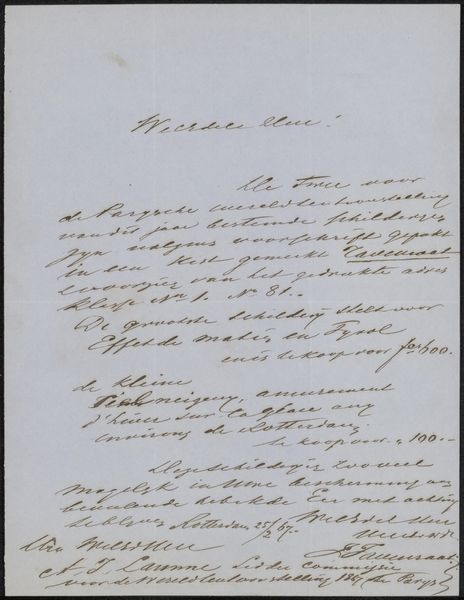 Weledele Heer!
De twee voor
de Parysche wereldtentoonstelling
van dit jaar bestemde schilderyen
zyn volgens voorschrift gepakt
in een kist gemerkt Tavenraat
voorzien van het gedrukte adres
klasse No 1. No 81.-
De grootste schildery stelt voor
Effet de matin en Tyrol
en is te koop voor ƒ 600.-
de kleine
amusement
d'hiver sur la glace aux
environs de Rotterdam
te koop voor " 100.-
Deze schilderyen zooveel
mogelyk in Uwe bescherming aan
bevelende heb ik de Eer met achting
te blyven Rotterdam 25/2 67.-
Weledel Heer
JTavenraat
Weled Heer
A. J. Lid der Commissie
voor de Wereldtentoonstelling 1867 te Parys